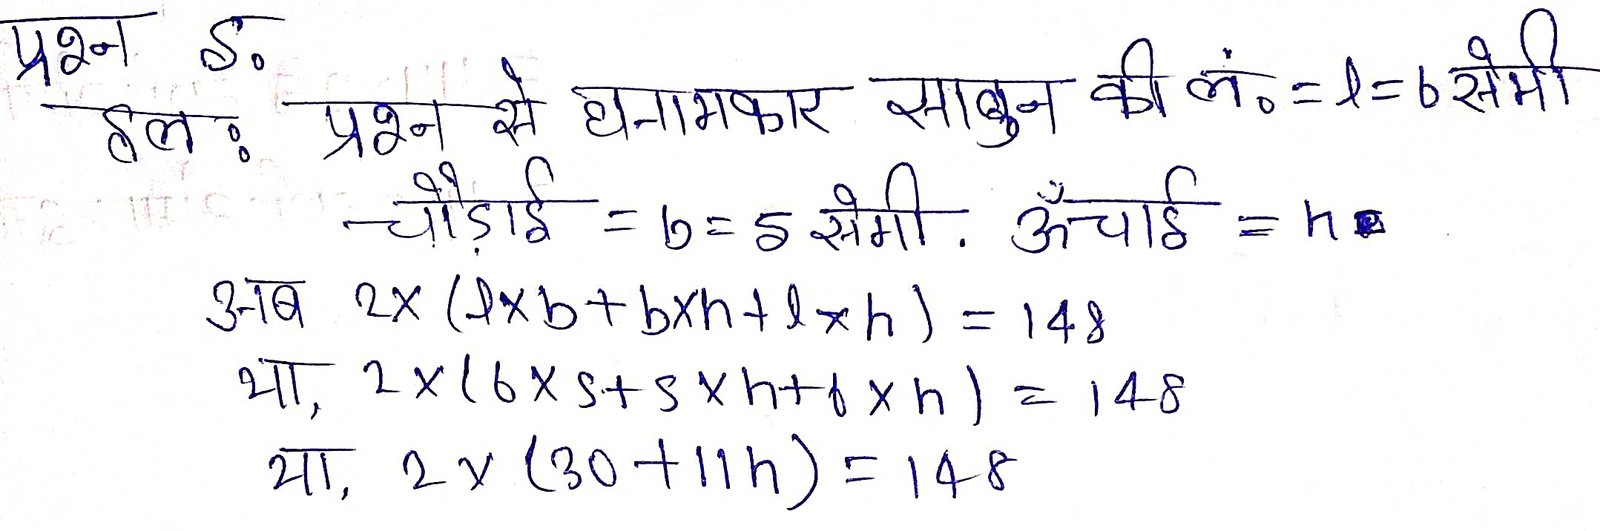 प्रश्न 5.
हल: प्रश्न से घनाभकार साबुन की लं. = l = 6 सेमी
चौड़ाई = b = 5 सेमी. ऊँचाई = h
अब 2 × (l × b + b × h + l × h) = 148
या, 2 × (6 × 5 + 5 × h + 6 × h) = 148
या, 2 × (30 + 11h) = 148